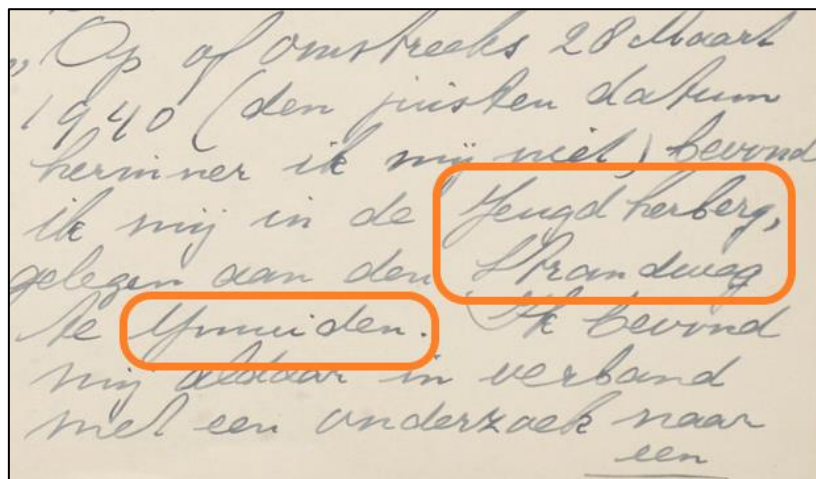 „Op of omstreeks 28 Maart
1940 (den juisten datum
herinner ik mij niet) bevond
ik mij in de Jeugdherberg,
gelegen aan den Strandweg
te Ymuiden. Ik bevond
mij aldaar in verband
met een onderzoek naar
een